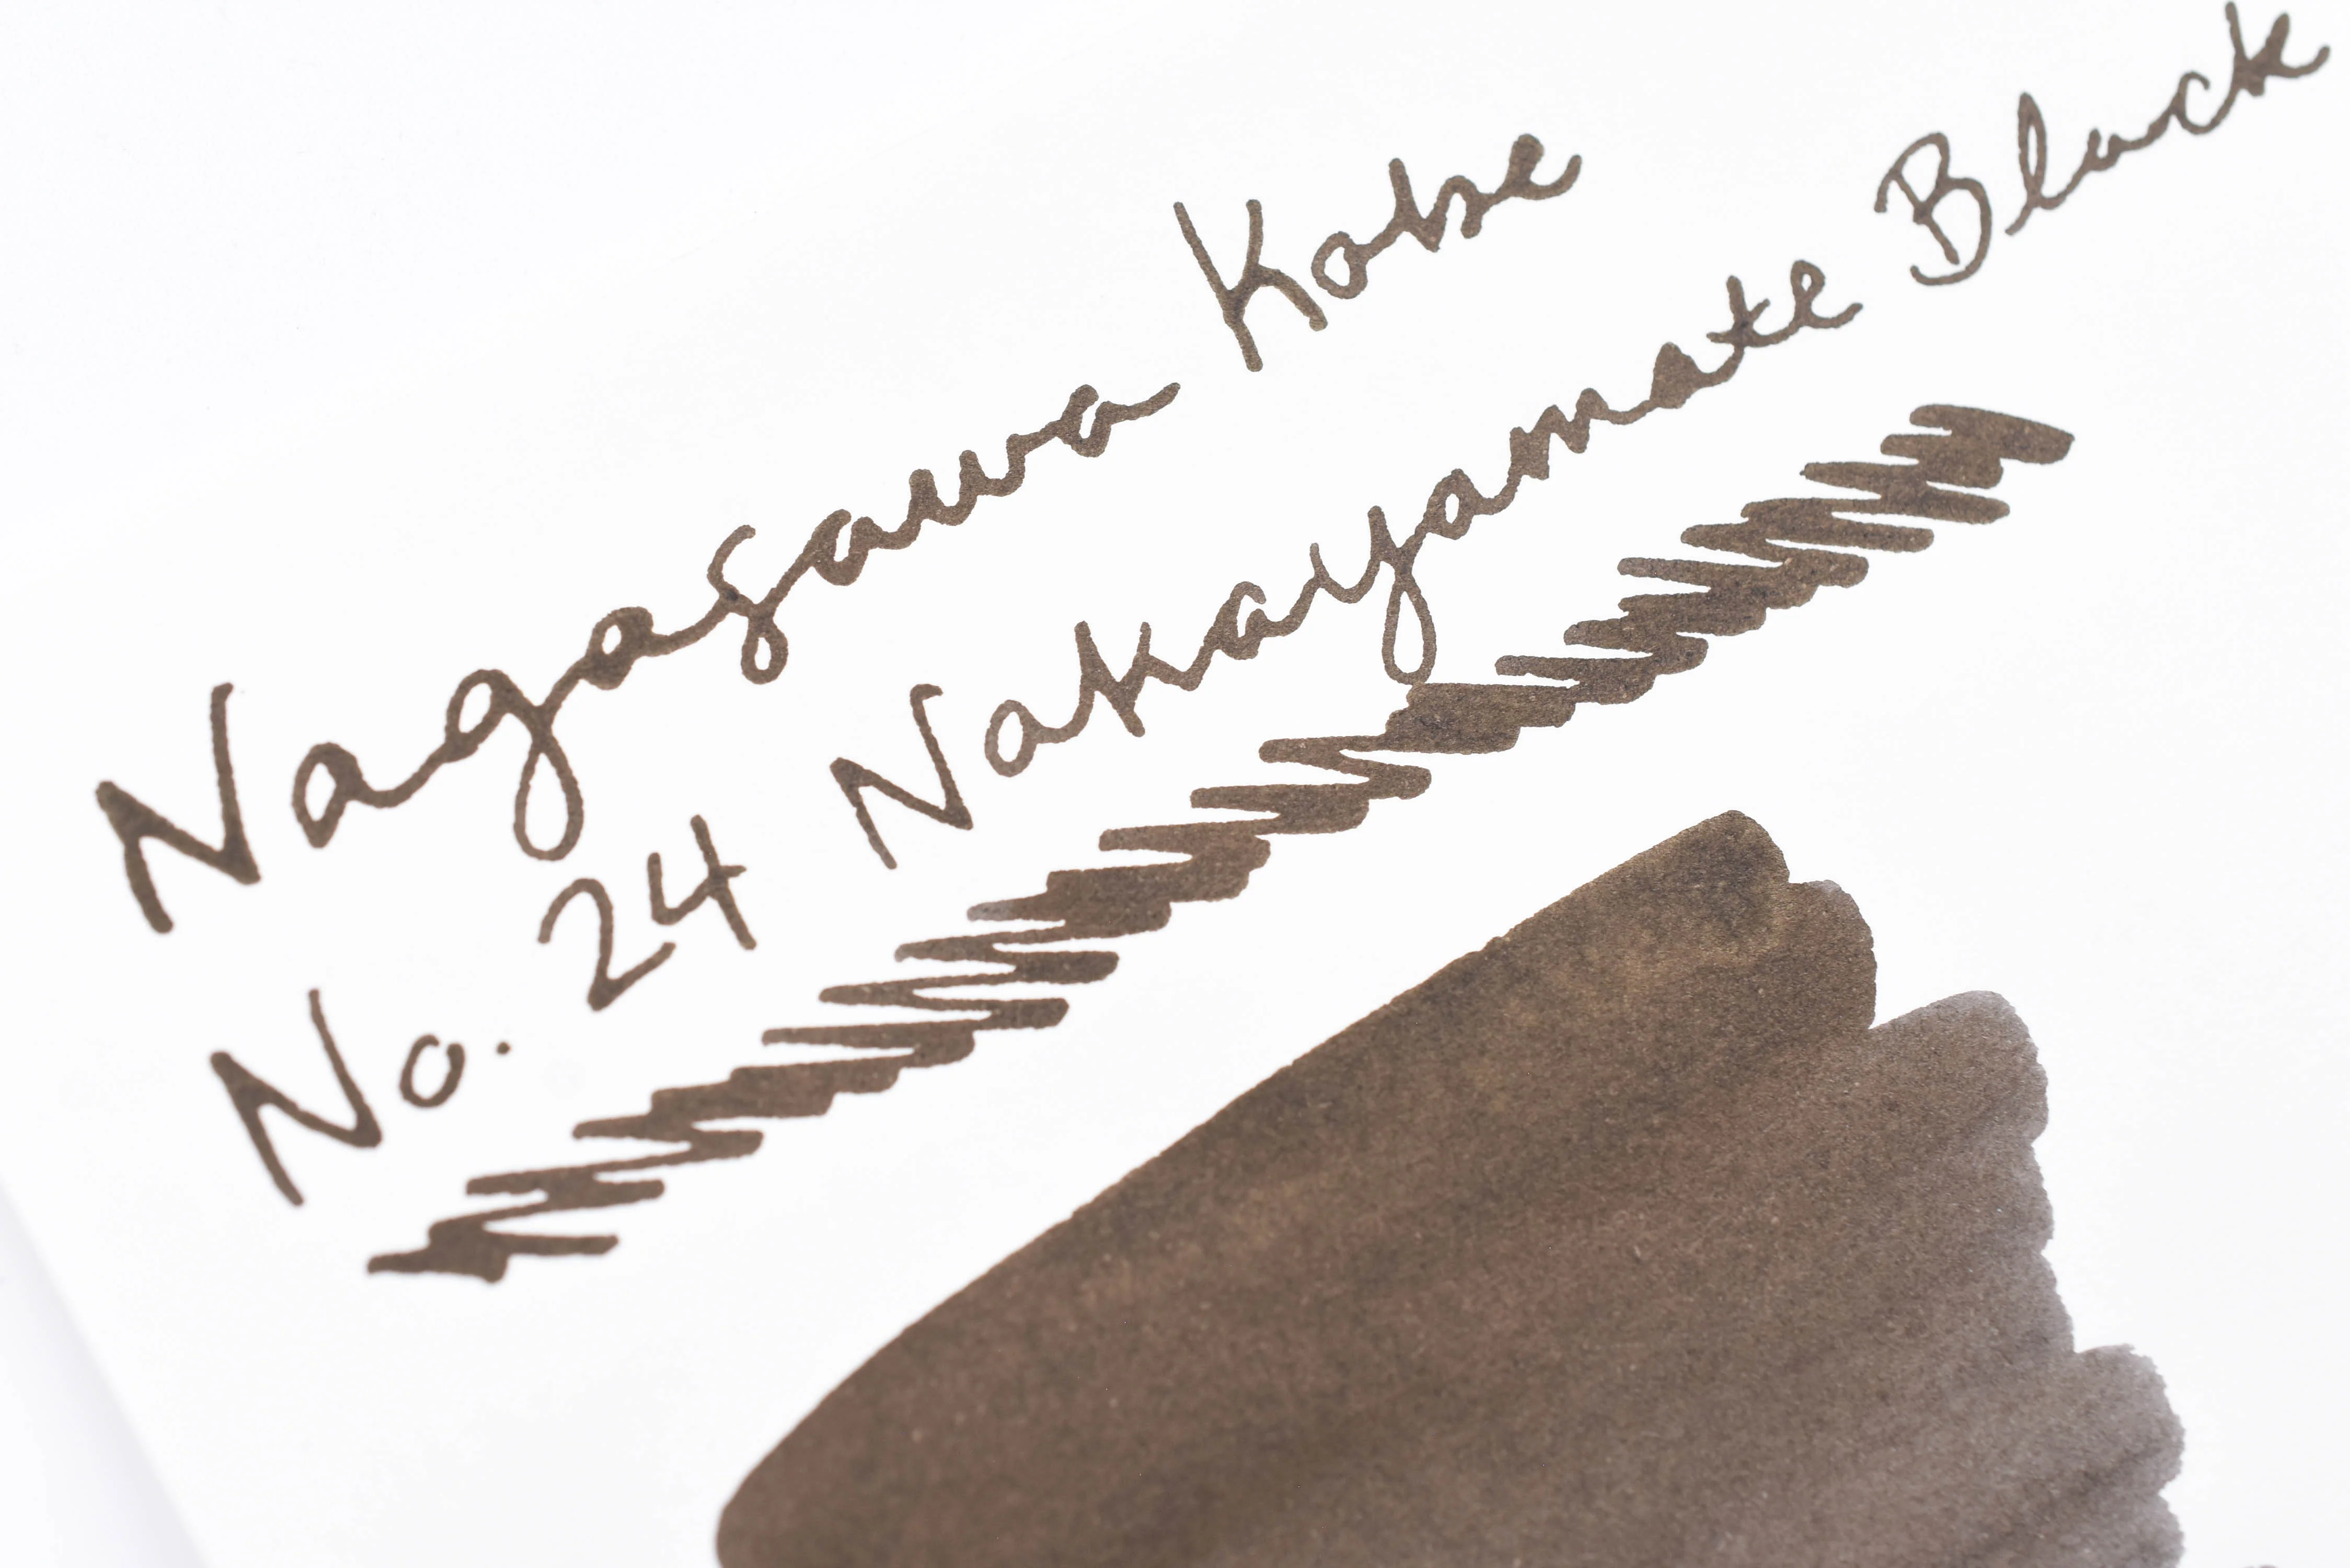 Nagasawa Kobe
No. 24 Nakayamate Black